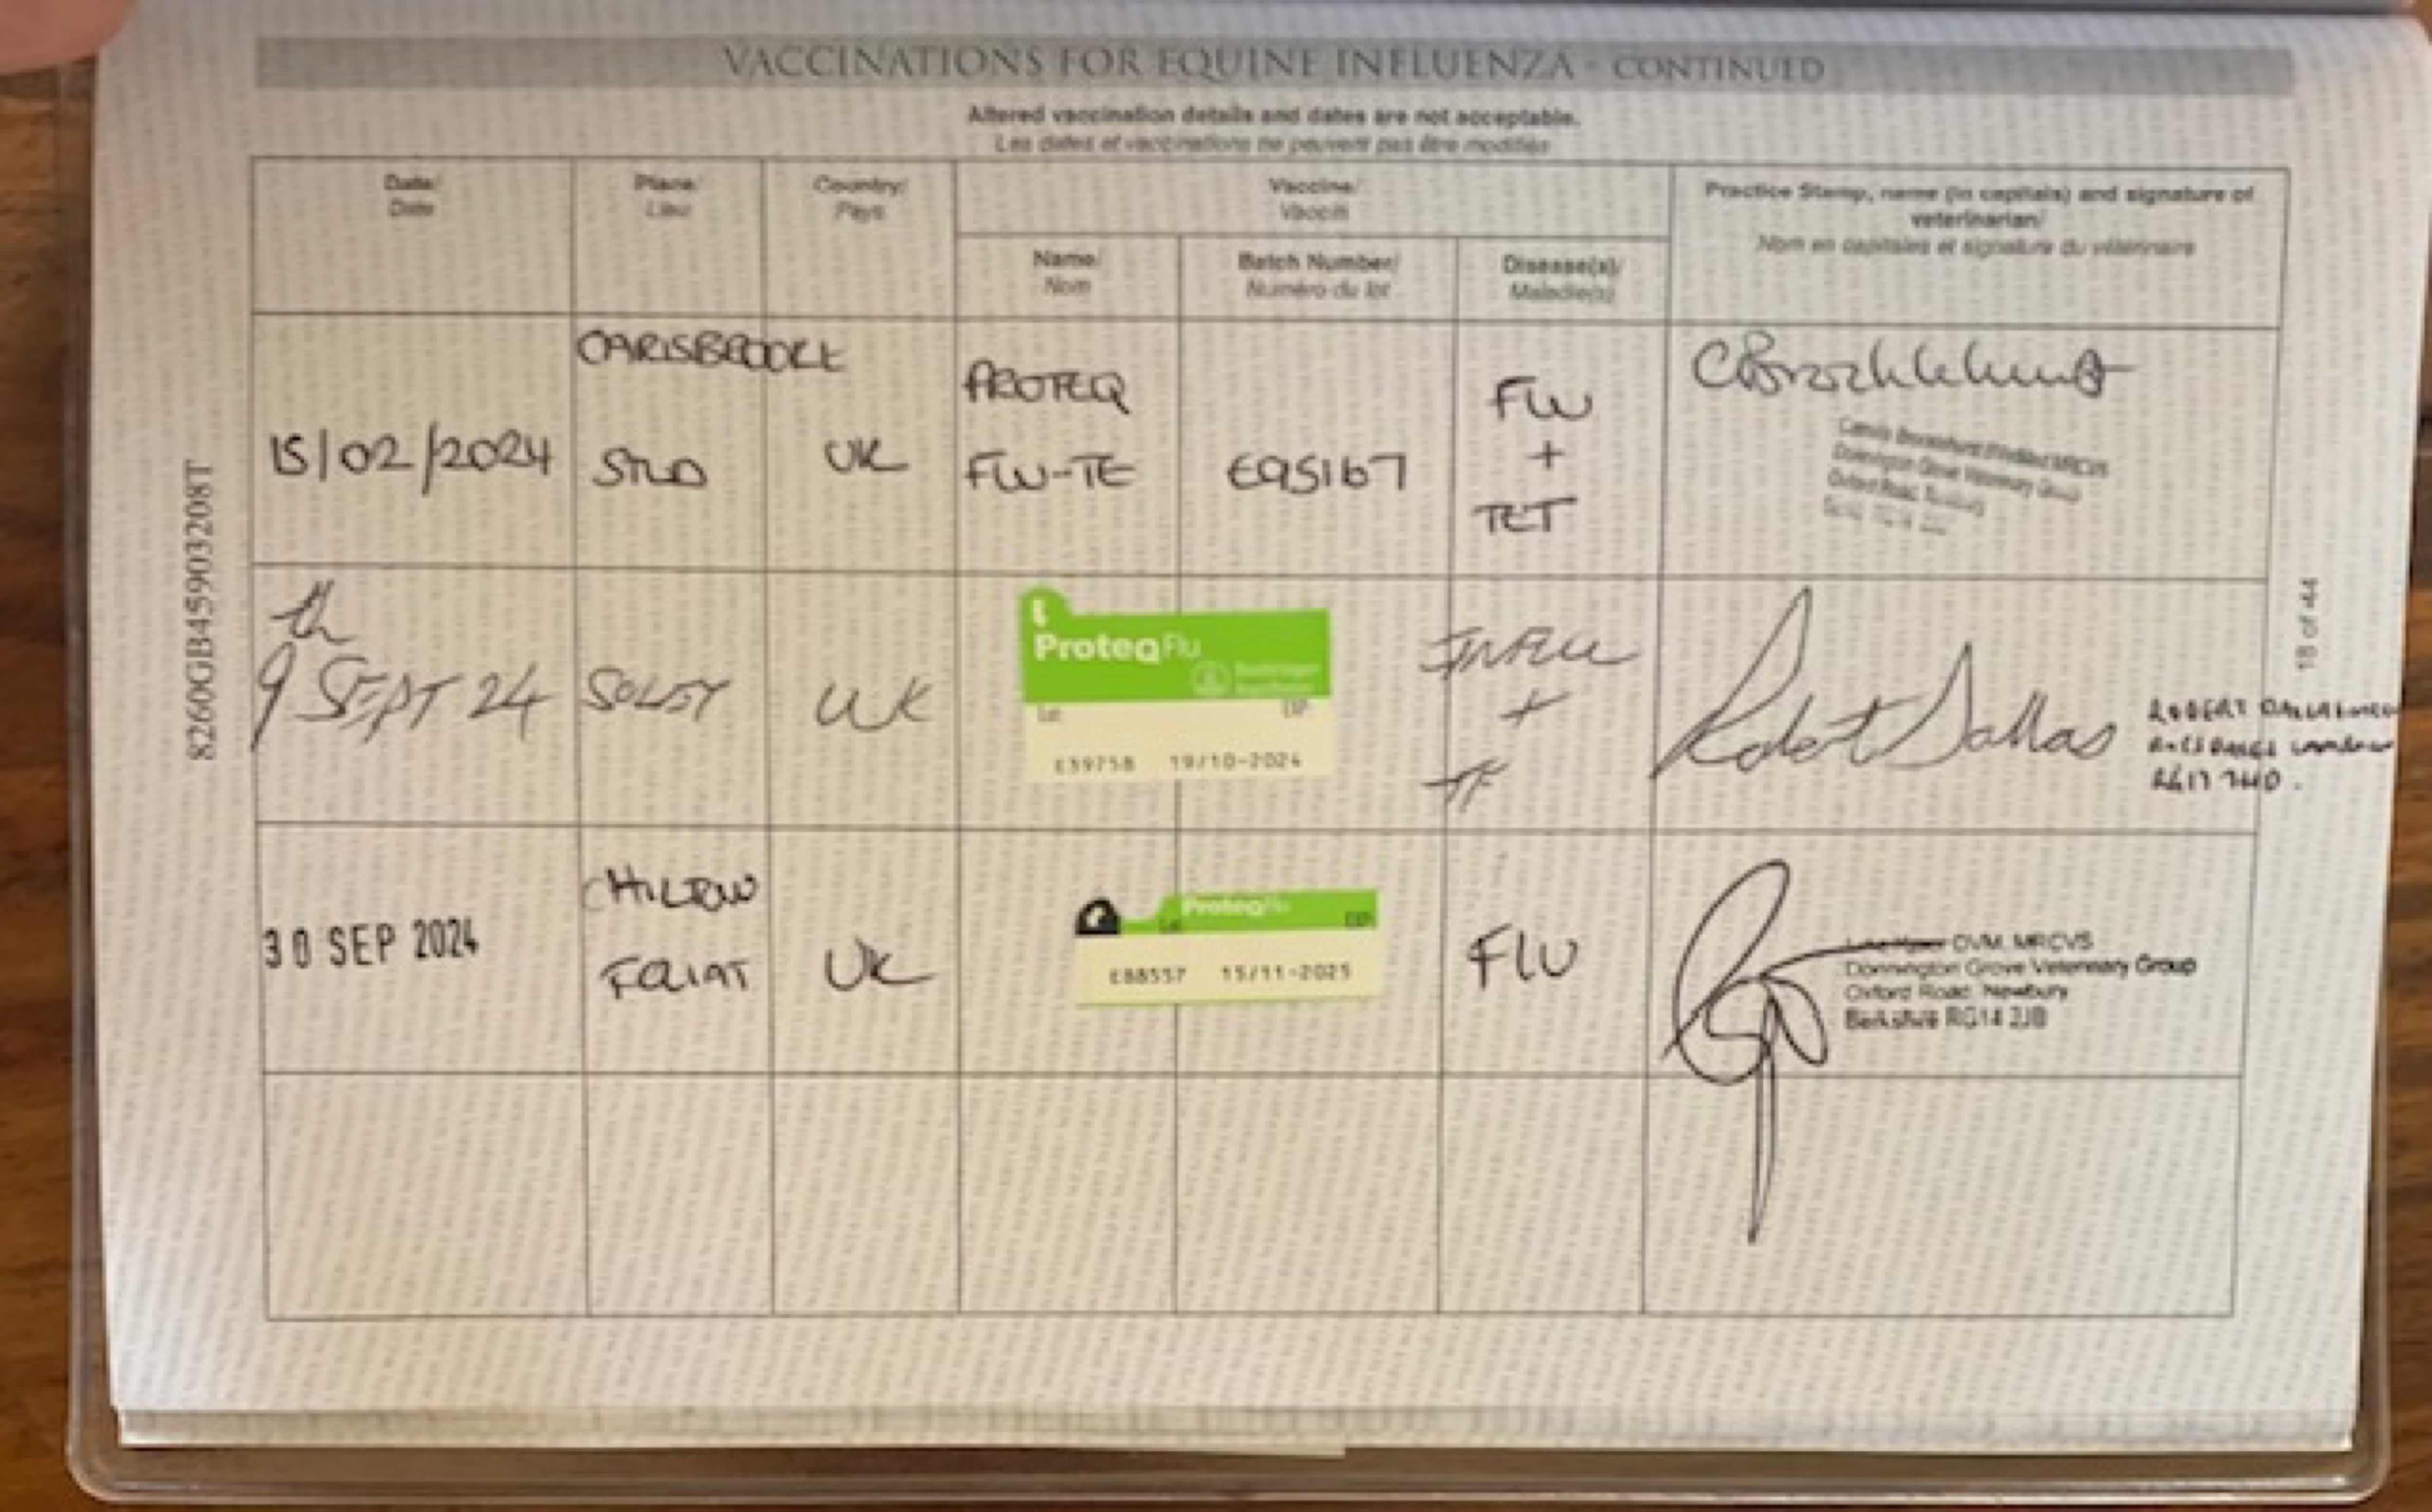 VACCINATIONS FOR EQUINE INFLUENZA - CONTINUED
Altered vaccination details and dates are not acceptable.
Les dates et vaccinations ne peuvent pas être modifiés
Date/
Date
Place/
Lieu
Country/
Pays
Vaccine/
Vaccin
Practice Stamp, name (in capitals) and signature of
veterinarian/
Nom en capitales et signature du vétérinaire
Name/
Nom
Batch Number/
Numéro du lot
Disease(s)/
Maladie(s)
15/02/2024
CARISBROOKE
STUD
UK
PROTEQ
FLU-TE
E95167
FLU
+
TET
CBrocklehurst
Donnington Grove Veterinary Group
9th SEPT 24
SOLEY
UK
ProteqFlu
Lot
EXP
E39758 19/10-2024
INFLU
+
Robert Dallas
ROBERT
30 SEP 2024
CHILTON
FOLIAT
UK
ProteqFlu
Lot
EXP
E88557 15/11-2025
FLU
DVM, MRCVS
Donnington Grove Veterinary Group
Oxford Road, Newbury
Berkshire RG14 2JB
8260GB45903208T
18 of 44